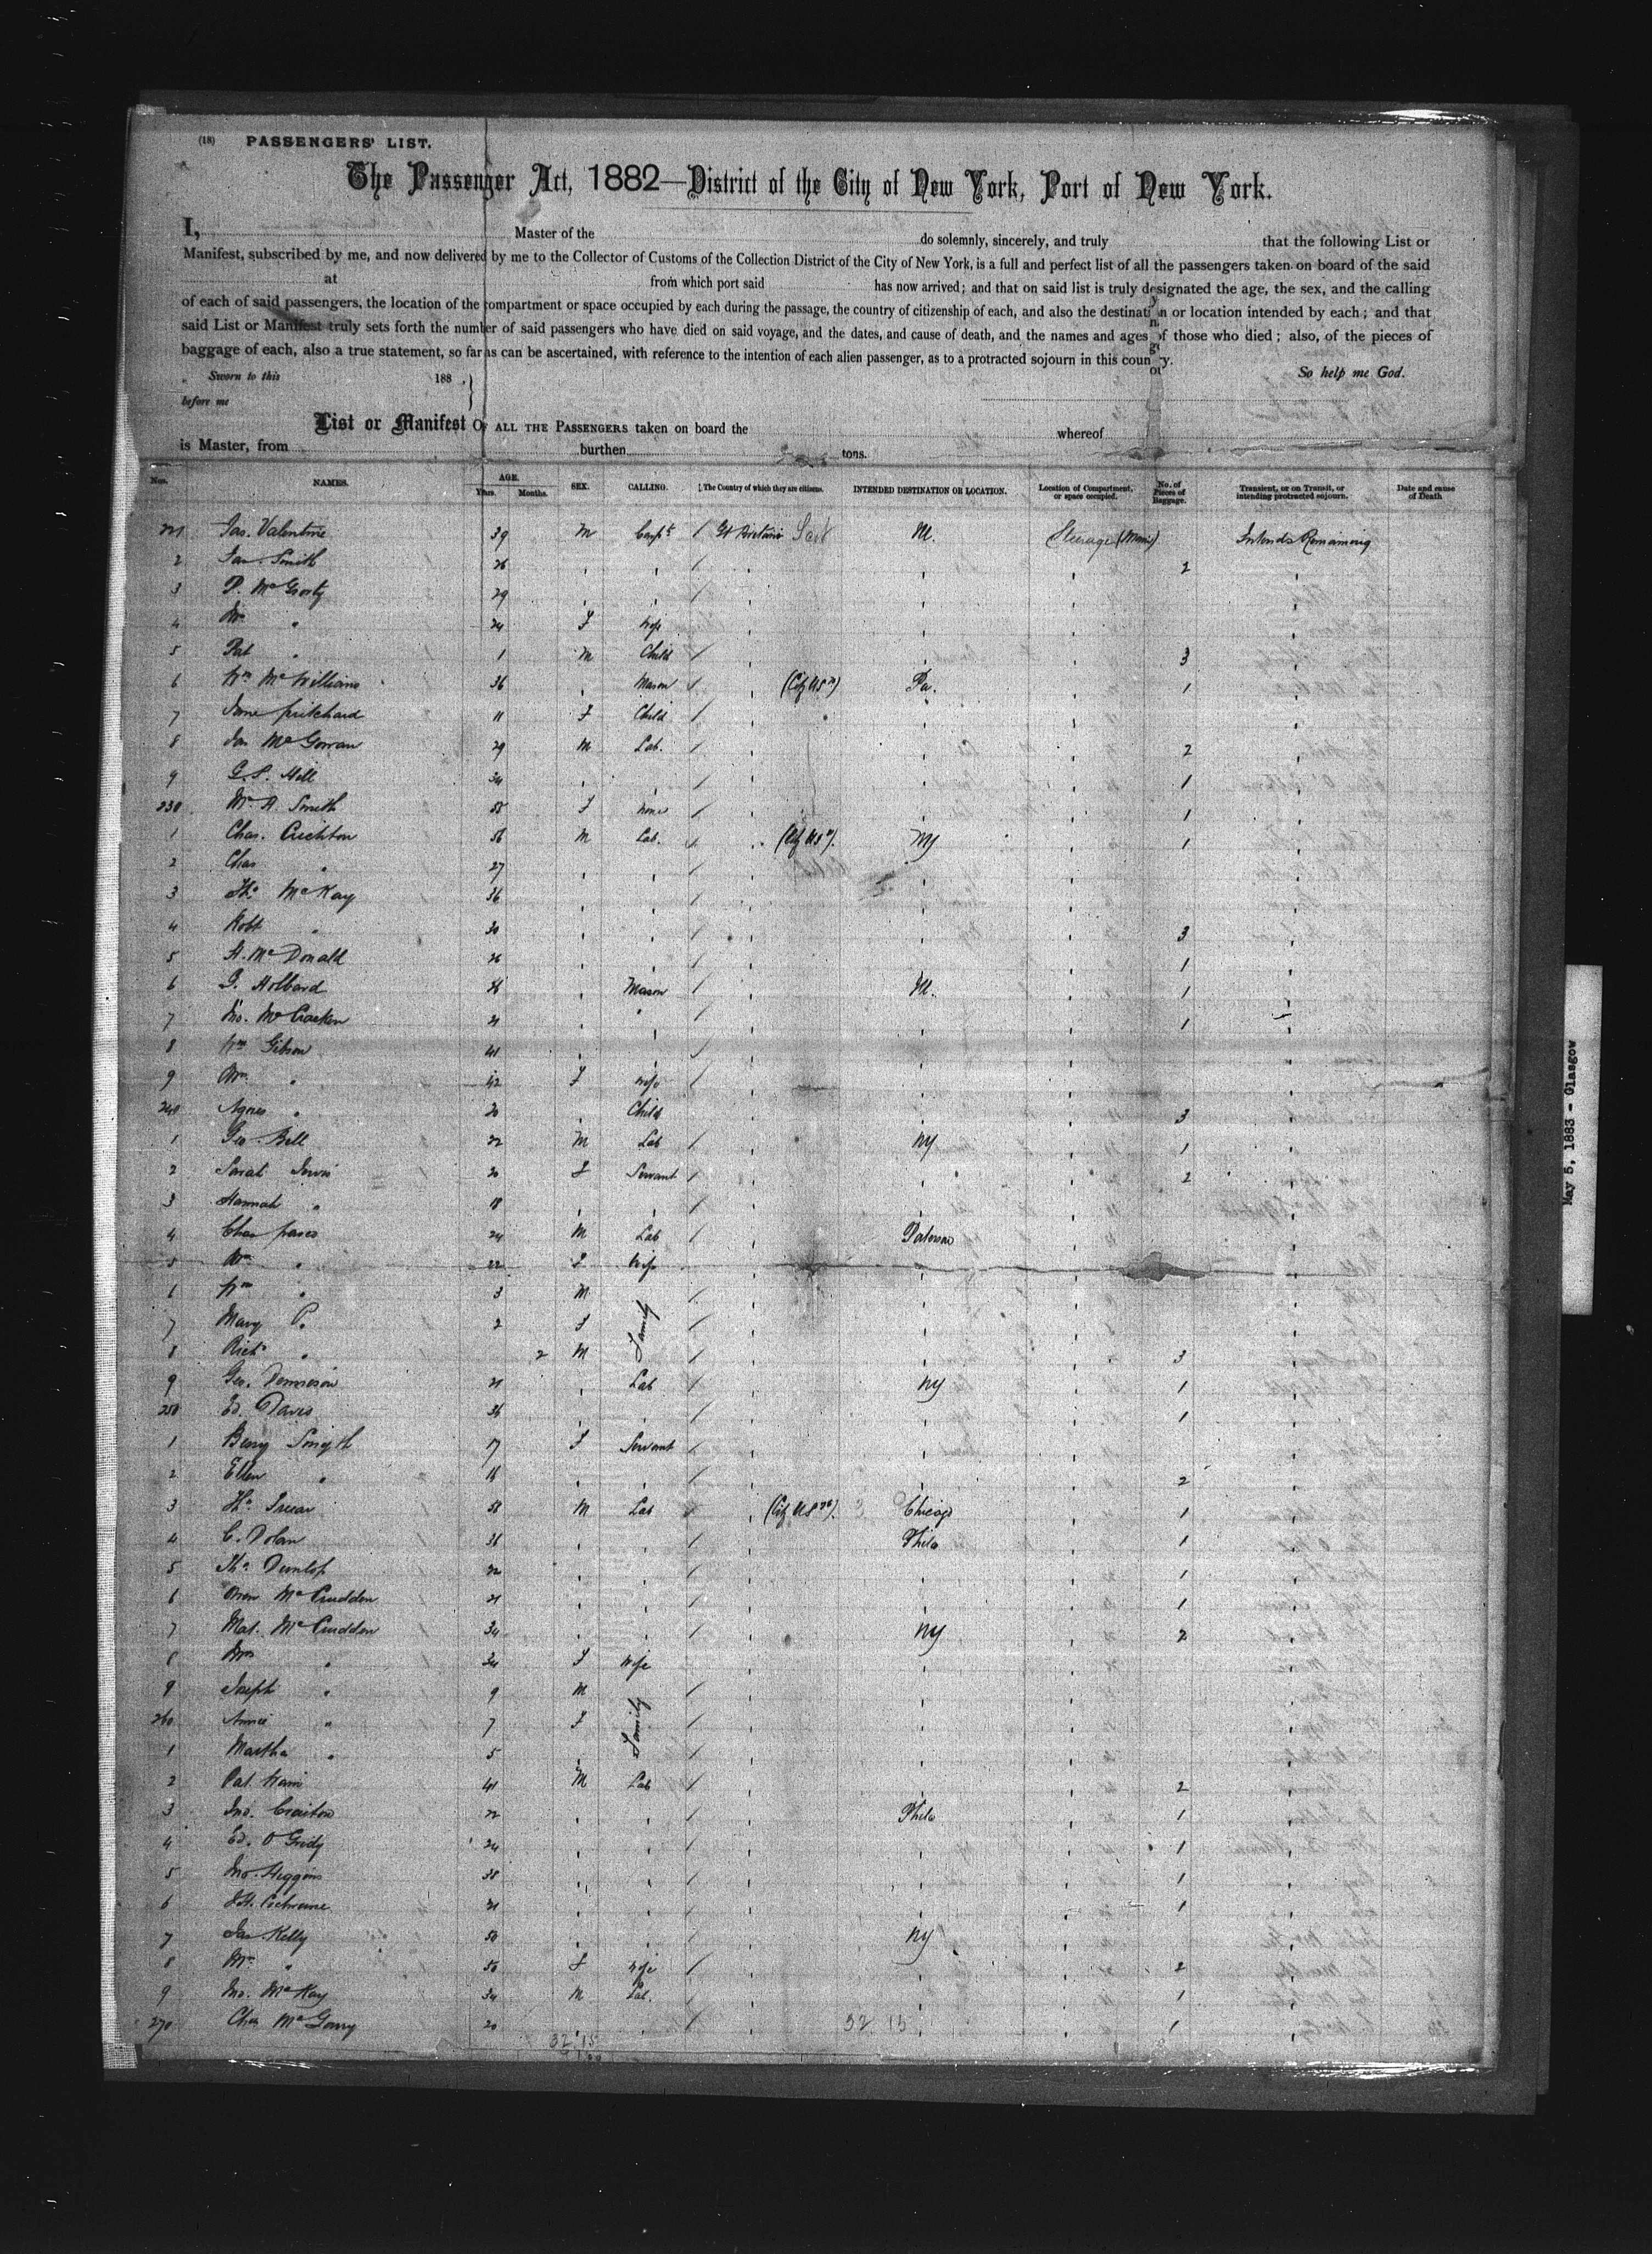 (18) PASSENGERS' LIST.
The Passenger Act, 1882—District of the City of New York, Port of New York.
I, Master of the do solemnly, sincerely, and truly that the following List or
Manifest, subscribed by me, and now delivered by me to the Collector of Customs of the Collection District of the City of New York, is a full and perfect list of all the passengers taken on board of the said
at from which port said has now arrived; and that on said list is truly designated the age, the sex, and the calling
of each of said passengers, the location of the compartment or space occupied by each during the passage, the country of citizenship of each, and also the destination or location intended by each; and that
said List or Manifest truly sets forth the number of said passengers who have died on said voyage, and the dates, and cause of death, and the names and ages of those who died; also, of the pieces of
baggage of each, also a true statement, so far as can be ascertained, with reference to the intention of each alien passenger, as to a protracted sojourn in this country.
Sworn to this 188 So help me God.
before me
List or Manifest OF ALL THE PASSENGERS taken on board the whereof
is Master, from burthen tons.
Nos. NAMES. AGE. Years. Months. SEX. CALLING. The Country of which they are citizens. INTENDED DESTINATION OR LOCATION. Location of Compartment, or space occupied. No. of Pieces of Baggage. Transient, or on Transit, or intending protracted sojourn. Date and cause of Death
221 Jas. Valentine 39 M Carpt Gt Britain Ill. Steerage Intends Remaining
2 Jas. Smith 26 " " " " " 2 "
3 P. McGrorty 29 " " " " " "
4 Mrs " 24 F Wife " " " "
5 Pat " 1 M Child " " " 3 "
6 Wm McWilliams 36 " Mason " Pa. " 1 "
7 Jane Pritchard 11 F Child " " " "
8 Jas McGowan 29 M Lab. " " " 2 "
9 G.S. Hill 34 " " " " " 1 "
230 Mrs A. Smith 55 F None " " " 1 "
1 Chas. Crichton 56 M Lab. " NY " 1 "
2 Chas " 27 " " " " " "
3 Tho McKay 36 " " " " " "
4 Robt " 30 " " " " " 3 "
5 A. McDonald 26 " " " " " 1 "
6 G. Holbard " Mason " Ill. " 1 "
7 Jno. McCracken 21 " " " " " 1 "
8 Wm Gibson 41 " " " " " "
9 Mrs " 42 F Wife " " " "
240 Agnes " 20 " Child " " " 3 "
1 Geo. Bell 22 M Lab " NY " 1 "
2 Sarah 20 F Servant " " " 2 "
3 Hannah " 18 " " " " " "
4 Chas 24 M Lab " Paterson " "
5 Mrs " 22 F Wife " " " "
6 Wm " 3 M Family " " " "
7 Mary P. " 2 F " " " "
8 Richd " 2 M " " " 3 "
9 Geo. Dennison 21 " Lab " NY " 1 "
250 Ed. Davis 36 " " " " " 1 "
1 Smyth 17 F Servant " " " "
2 Ellen " 16 " " " " " 2 "
3 Tho 58 M Lab " Chicago " 1 "
4 C. Dolan 36 " " " Phila " 1 "
5 Tho Dunlop 22 " " " " " 1 "
6 Owen McCrudden 21 " " " " " 1 "
7 Mat. McCrudden 34 " " " NY " 2 "
8 Mrs " 34 F Wife " " " "
9 Joseph " 9 M Family " " " "
260 Annie " 7 F " " " "
1 Martha " 5 " " " " "
2 Pat. 41 M Lab " " " 2 "
3 Jno. 22 " " " Phila " 1 "
4 Ed. O Grady 24 " " " " " 1 "
5 Jno. Higgins 38 " " " " " 1 "
6 Cochrane 21 " " " " " 1 "
7 Jas Kelly 50 " " " NY " "
8 Mrs " 50 F Wife " " " 2 "
9 Jno. McKay 34 M Lab. " " " 1 "
270 Chas 20 " " " " " 1 "
32 15
32 15
May 5, 1883 - Glasgow